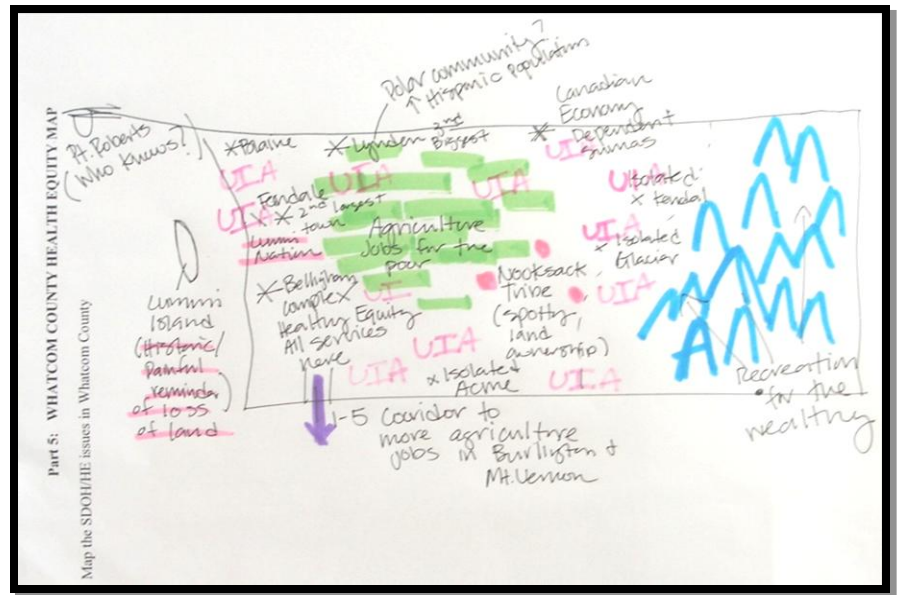 Part 5: WHATCOM COUNTY HEALTH EQUITY MAP
Map the SDOH/HE issues in Whatcom County
Pt. Roberts
(Who Knows?)
Polar community?
↑ Hispanic Population
Canadian
Economy
Dependent
Sumas
Blaine
Lynden 3rd
Biggest
UIA
UIA
UIA
UIA
UIA
Ferndale
2nd largest
town
UIA
Lummi
Nation
Agriculture
Jobs for the
poor
Isolated
x Kendal
UIA
x Isolated
Glacier
Bellingham
complex
Healthy Equity
All services
here
UI
Nooksack
Tribe
(spotty,
land
ownership)
UIA
UIA
UIA
x Isolated
Acme
UIA
Lummi
Island
(Historic/
Painful
reminder)
of loss
of land
Recreation
for the
wealthy
I-5 Cooridor to
more agriculture
jobs in Burlington +
Mt. Vernon